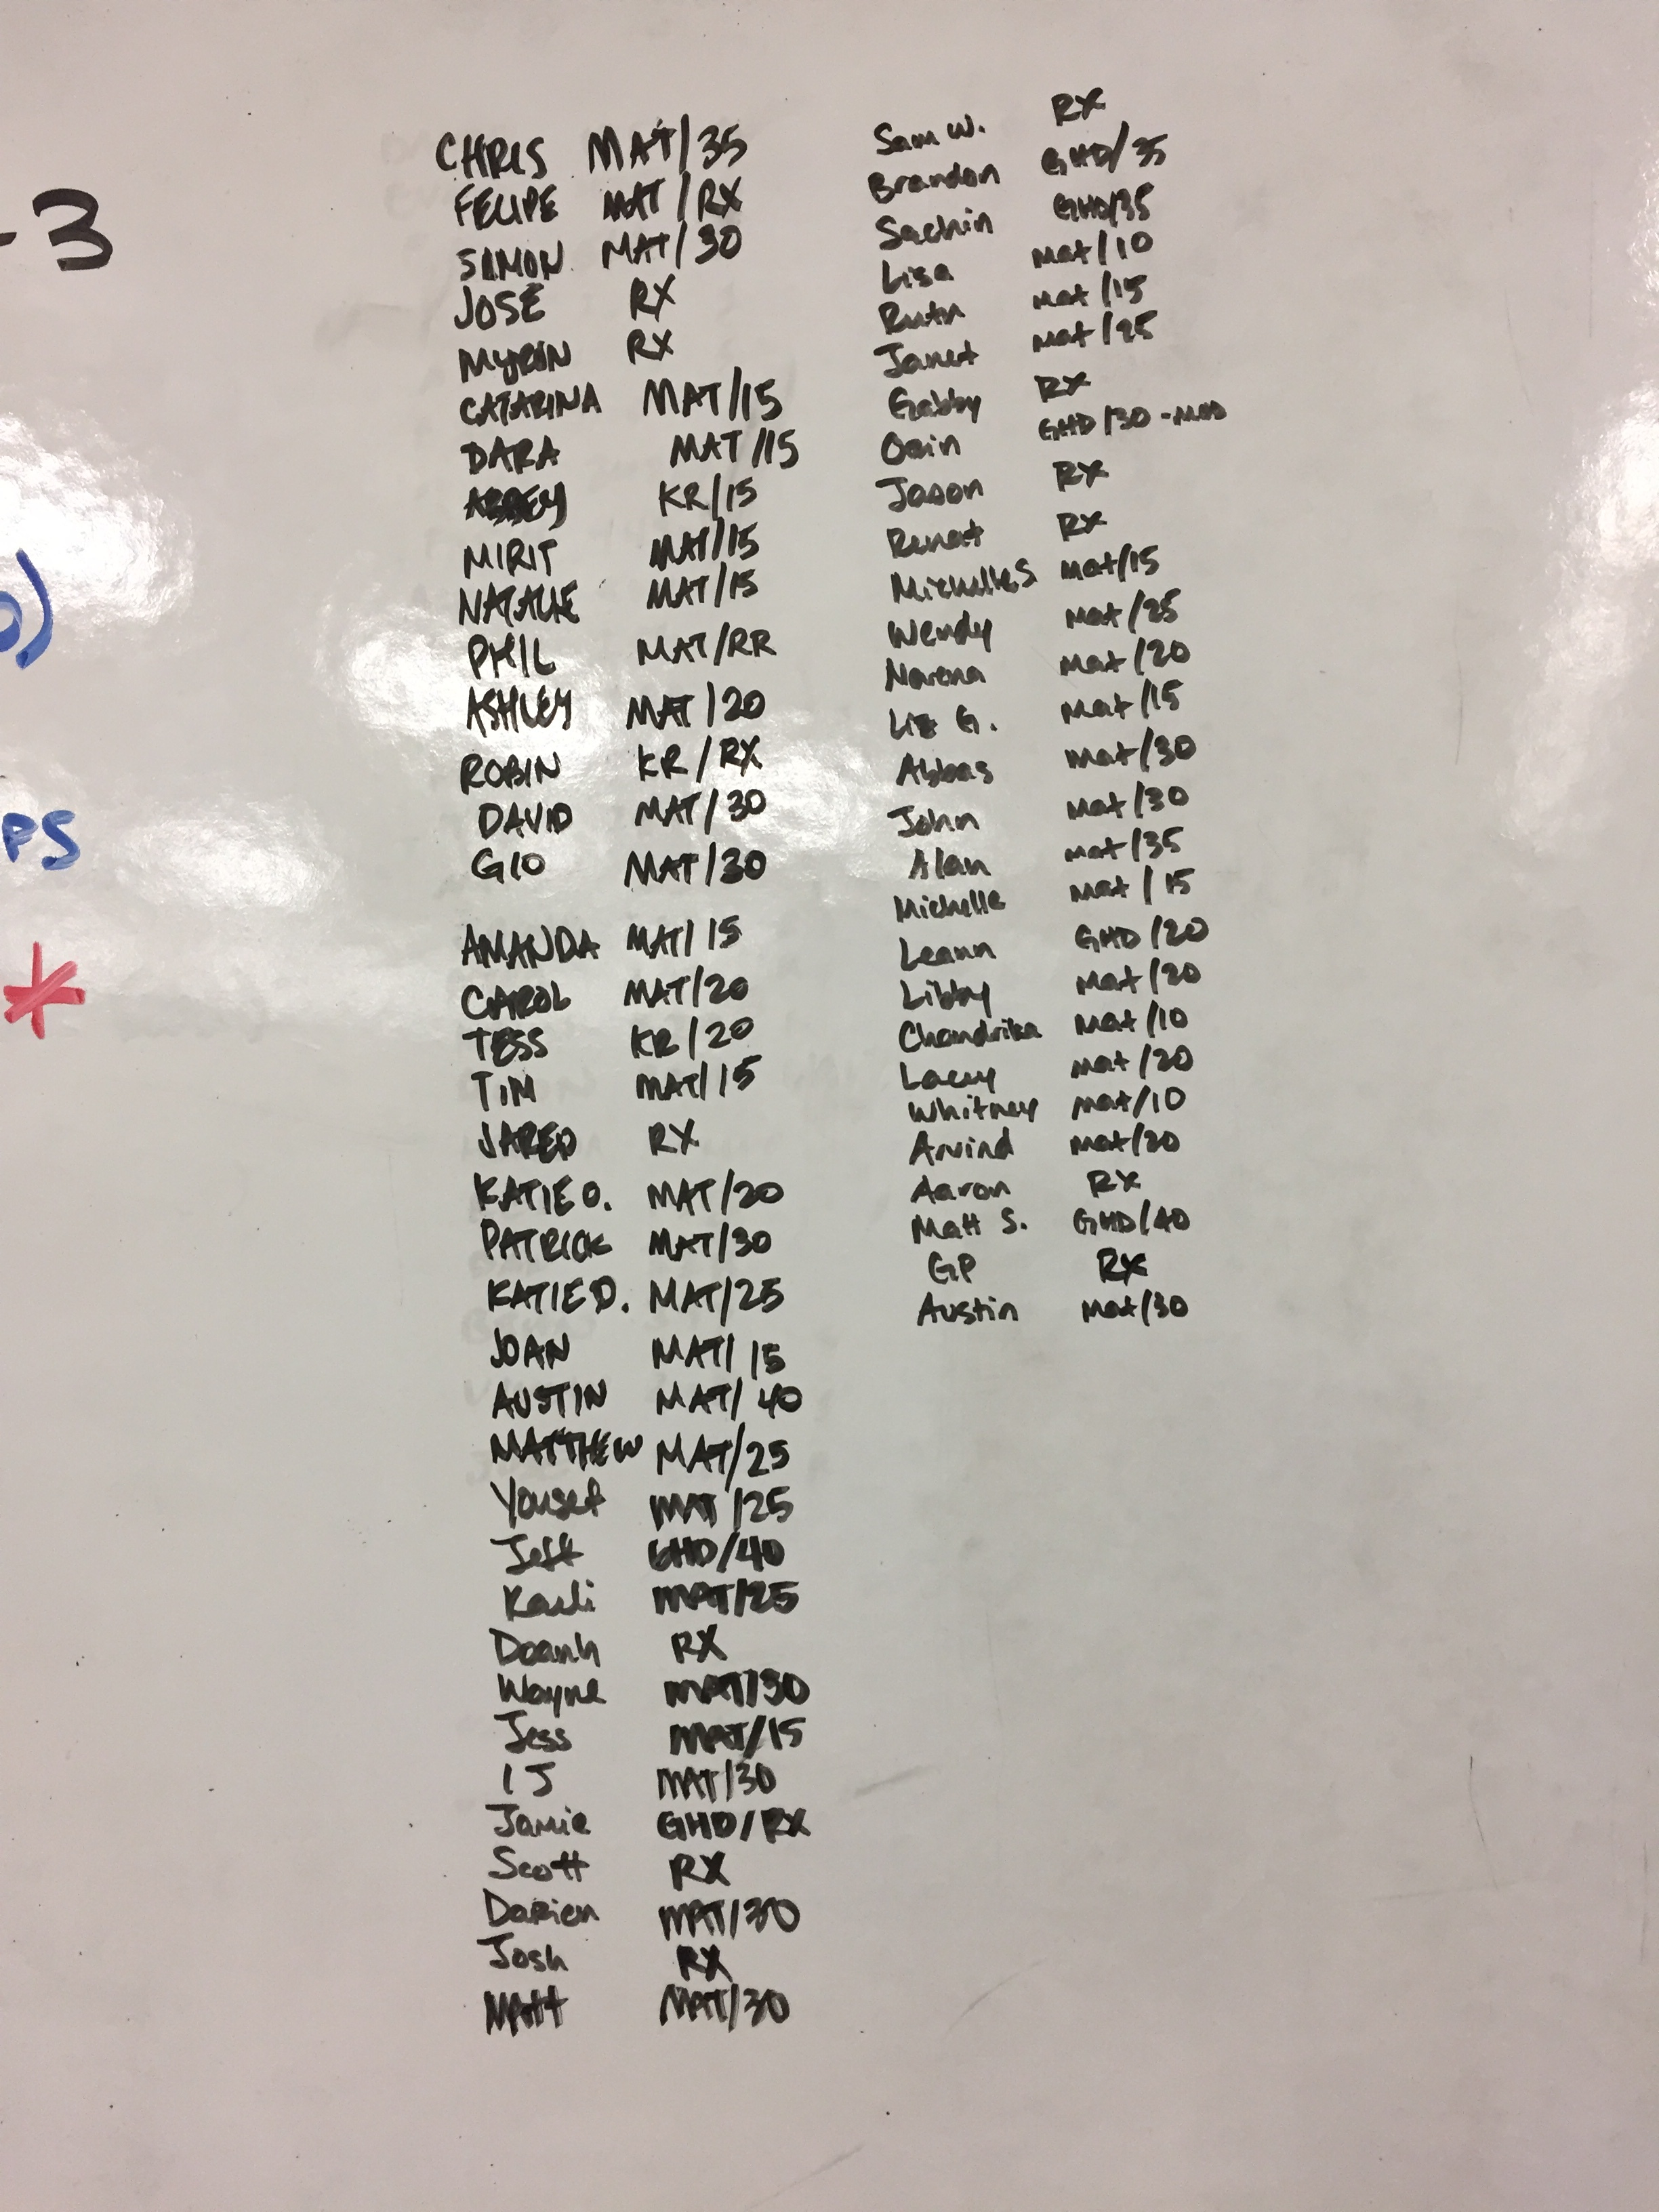 -3
)
PS
*
CHRIS MAT/35
FELIPE MAT/RX
SIMON MAT/30
JOSE RX
MYRON RX
CATARINA MAT/15
DARA MAT/15
ABBEY KR/15
MIRIT MAT/15
NATALIE MAT/15
PHIL MAT/RR
ASHLEY MAT/20
ROBIN KR/RX
DAVID MAT/30
GIO MAT/30
AMANDA MAT/15
CAROL MAT/20
TESS KR/20
TIM MAT/15
JARED RX
KATIE O. MAT/20
PATRICK MAT/30
KATIE D. MAT/25
JOAN MAT/15
AUSTIN MAT/40
MATTHEW MAT/25
Yousef MAT/25
Jeff GHD/40
Karli MAT/25
Doanh RX
Wayne MAT/30
Jess MAT/15
IJ MAT/30
Jamie GHD/RX
Scott RX
Darien MAT/30
Josh RX
Matt MAT/30
Sam W. RX
Brandon GHD/35
Sachin GHD/35
Lisa Mat/10
Ruth Mat/15
Janet Mat/25
Gabby RX
Oein GHD/30 -MOD
Jason RX
Renat RX
Michelle S Mat/15
Wendy Mat/25
Narena Mat/20
Liz G. Mat/15
Abbas Mat/30
John Mat/30
Alan Mat/35
Michelle Mat/15
Leann GHD/20
Libby Mat/20
Chandrika Mat/10
Lacey Mat/20
Whitney Mat/10
Arvind Mat/20
Aaron RX
Matt S. GHD/40
GP RX
Austin Mat/30